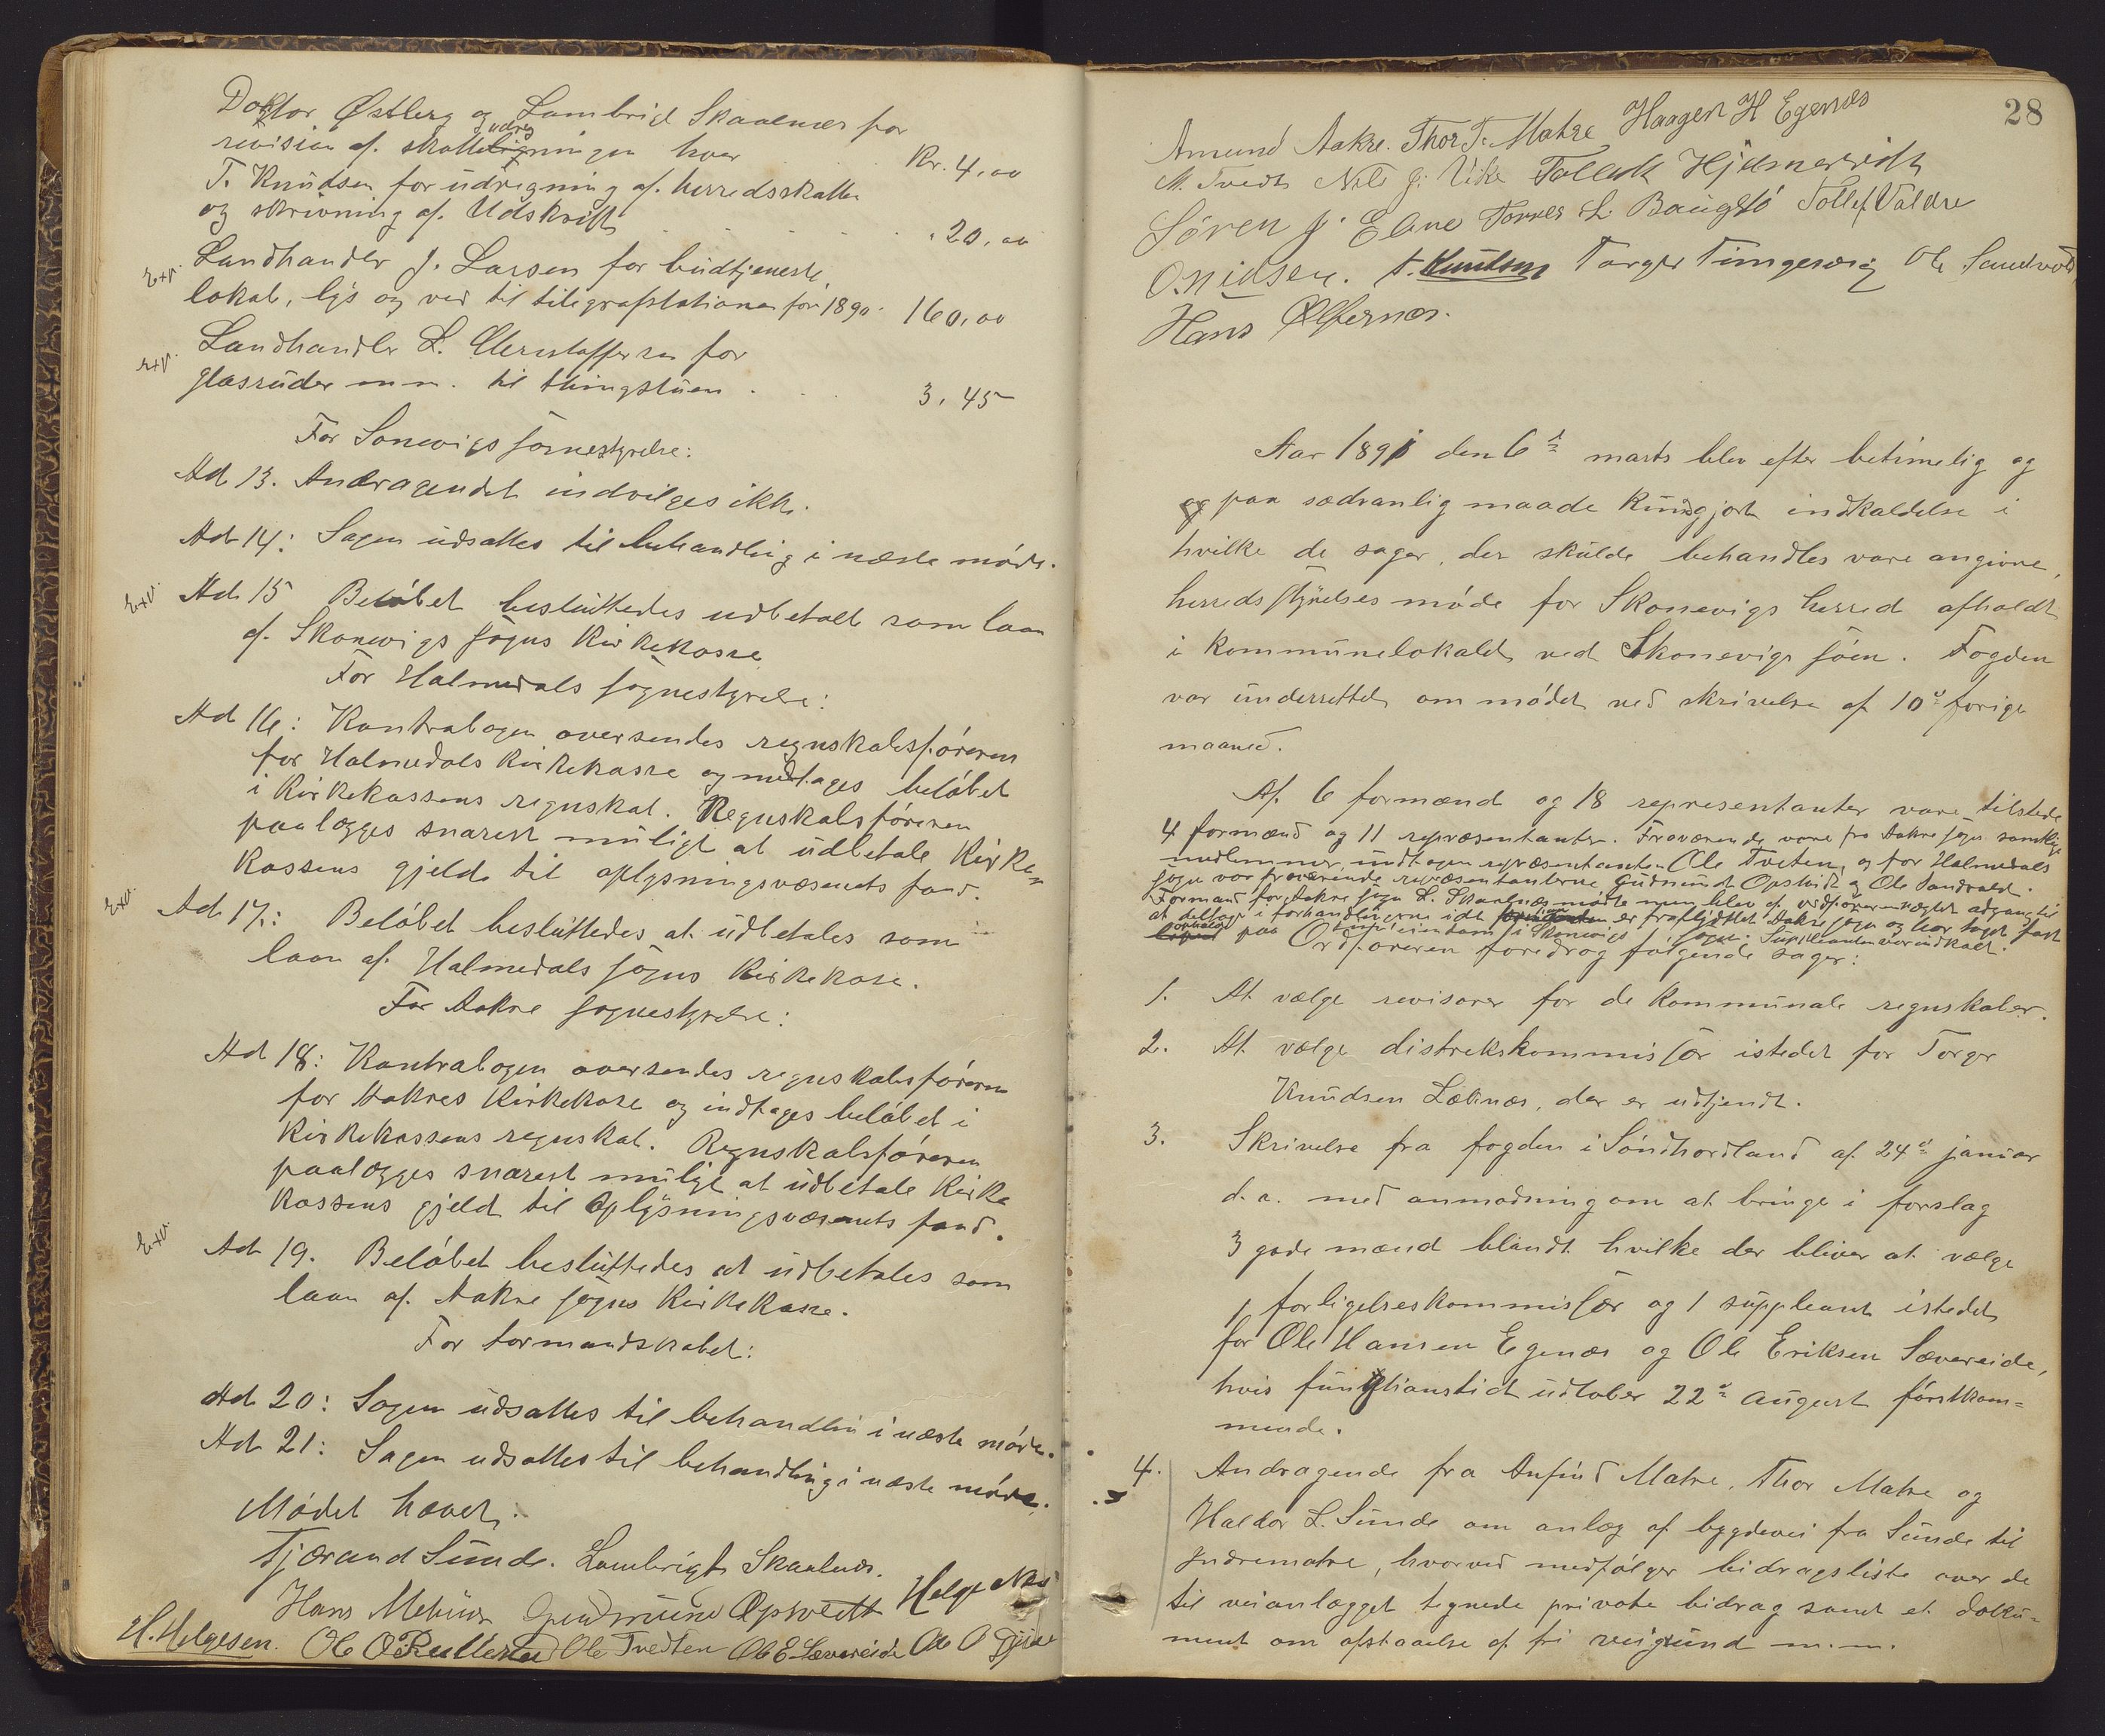 Doktor Østberg og Lambrigt Skaalnæs for
revision af skatteligningen hver . . . Kr. 4,00
udreg
T. Knudsen for udregning af herredsskatten
og skrivning af Udskrift . . . . . . 20,00
Exp. Landhandler J. Larsen for budtjeneste,
lokale, lys og ved til telegrafstationen for 1890. 160,00
Exp. Landhandler L. Christoffersen for
glasruder m.m. til thingstuen . . . 3,45
For Sonevigs sognestyrelse:
Ad 13. Andragendet indvilges ikke.
Ad 14: Sagen udsattes til behandling i næste møde.
Exp. Ad 15 Beløbet besluttedes udbetalt som laan
af Skonevigs sogns Kirkekasse.
For Halmedals sognestyrelse:
Ad 16: Kontrabogen oversendes regnskabsføreren
for Halmedals Kirkekasse og medtages beløbet
i Kirkekassens regnskab. Regnskabsføreren
paalægges snarest muligt at udbetale Kirke=
kassens gjeld til oplysningsvæsenets fond.
Exp. Ad 17: Beløbet besluttedes at udbetales som
laan af Halmedals sogns Kirkekasse.
For Aakre sognestyrelse:
Ad 18: Kontrabogen oversendes regnskabsføreren
for Aakres Kirkekasse og indtages beløbet i
Kirkekassens regnskab. Regnskabsføreren
paalægges snarest muligt at udbetale Kirke
kassens gjeld til Oplysningsvæsenets fond.
Exp. Ad 19. Beløbet besluttedes at udbetales som
laan af Aakre sogns Kirkekasse.
For formandskabet:
Ad 20: Sagen udsattes til behandlin i næste møde.
Ad 21: Sagen udsattes til behandling i næste møde.
Mødet hævet.
Tjærand Sunde. Lambrigt Skaalnæs.
Hans Mehus Gudmund Opsvedt Helge Næs
H. Helgesen. Ole O Rullestad Ole Tvedten Ole E Sævereide Ole O
28
Amund Aakre. Thor T. Matre Haagen H Egenæs
M. Tvedt Nils J. Vike Tollak Hjelmervik
Søren J. Elvne Torres L. Baugstø Tollef Valdre
O. Nielsen. T. Knutsen Torger Tungesvig Ole Sandvold
Hans Ølfernæs.
Aar 1891 den 6te marts blev efter betimelig og
og paa sædvanlig maade Kundgjort indkaldelse i
hvilke de sager, der skulde behandles vare angivne,
herredsstyrelses møde for Skonevigs herred afholdt
i kommunelokalet ved Skonevigs søen. Fogden
var underrettet om mødet ved skrivelse af 10de forige
maaned.
Af 6 formænd og 18 representanter vare tilstede
4 formænd og 11 repræsentanter. Fraværende vare fra Aakre sogn samtlige
medlemmer undtagen repræsentanten Ole Tveten, og for Halmedals
sogn var fraværende repræsentanterne Gudmund Opsvedt og Ole Sandvold.
Formand for Aakre sogn L. Skaalnæs mødte men blev af ordføreren nægtet adgang til
at deltage i forhandlingerne idet han er fraflyttet Aakre sogn og har taget fast
ophold paa eiendom i Skonevigs sogn. Suppleanten var indkaldt.
Ordføreren foredrog følgende sager:
1. At vælge revisorer for de kommunale regnskaber.
2. At vælge distrekskommissær istedet for Torger
Knudsen Læknæs, der er udtjendt.
3. Skrivelse fra fogden i Søndhordland af 24de januar
d.a. med anmodning om at bringe i forslag
3 gode mænd blandt hvilke der bliver at vælge
1 forligelseskommissær og 1 suppleant istedet
for Ole Hansen Egenæs og Ole Eriksen Sævereide,
hvis funktionstid udløber 22de august førstkom=
mende.
4. Andragende fra Anfind Matre, Thor Matre og
Haldor L. Sunde om anlæg af bygdevei fra Sunde til
Indrematre, hvorved medfølger bidragsliste over de
til veianlægget tegnede private bidrag samt et doku=
ment om afstaaelse af fri veigrund m.m.